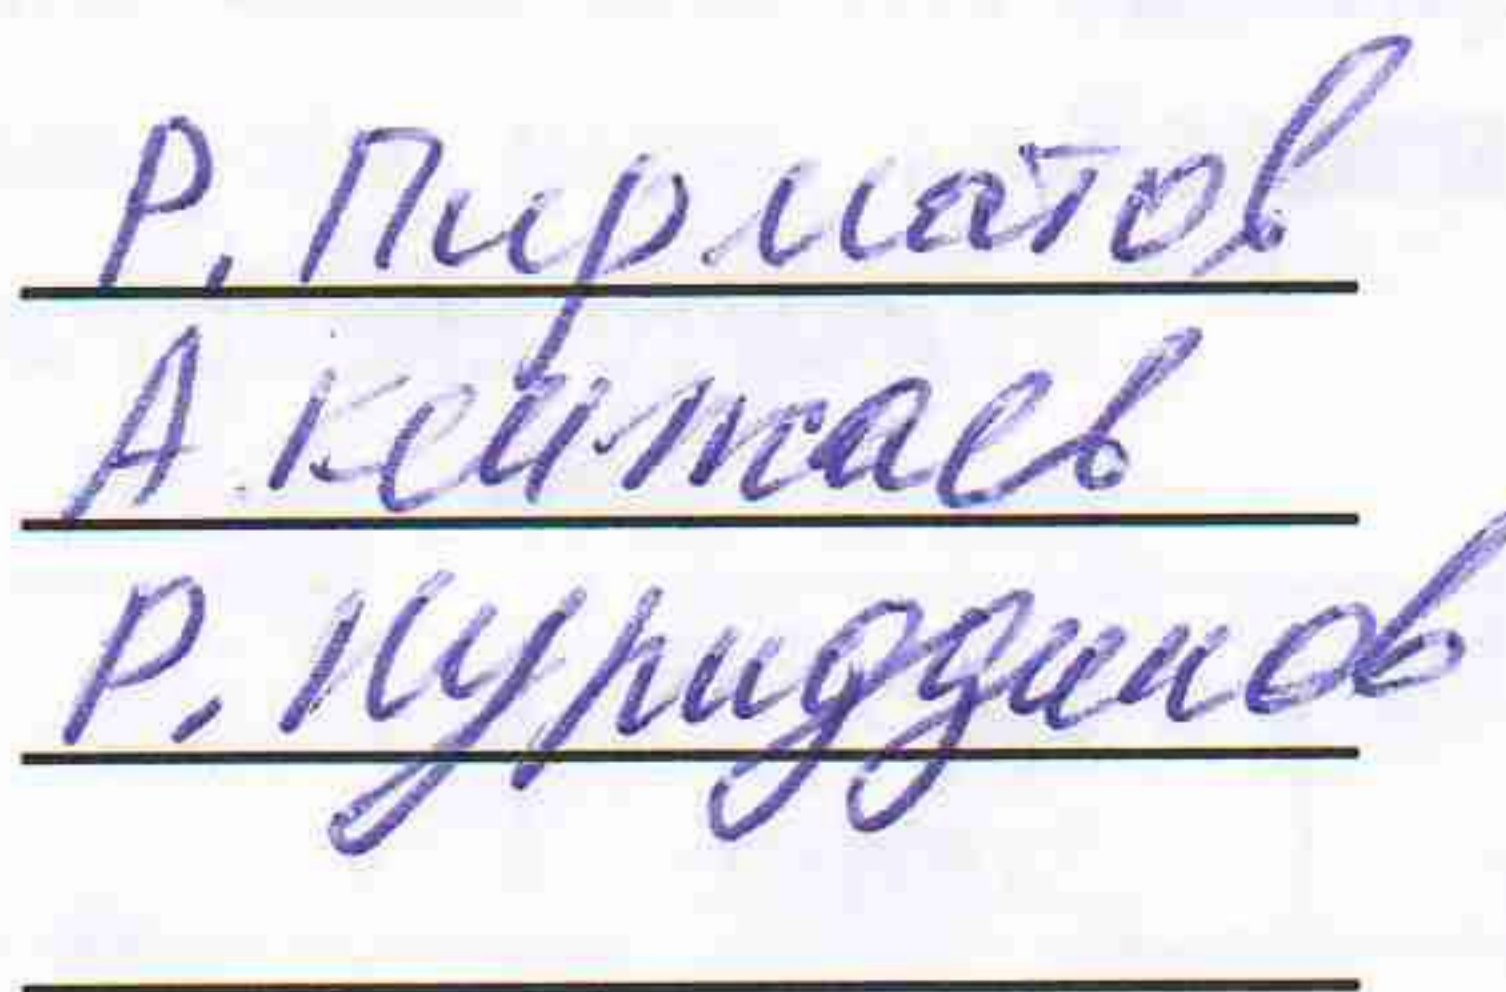 Р. Пирматов
А. Кентаев
Р. Нуриддинов